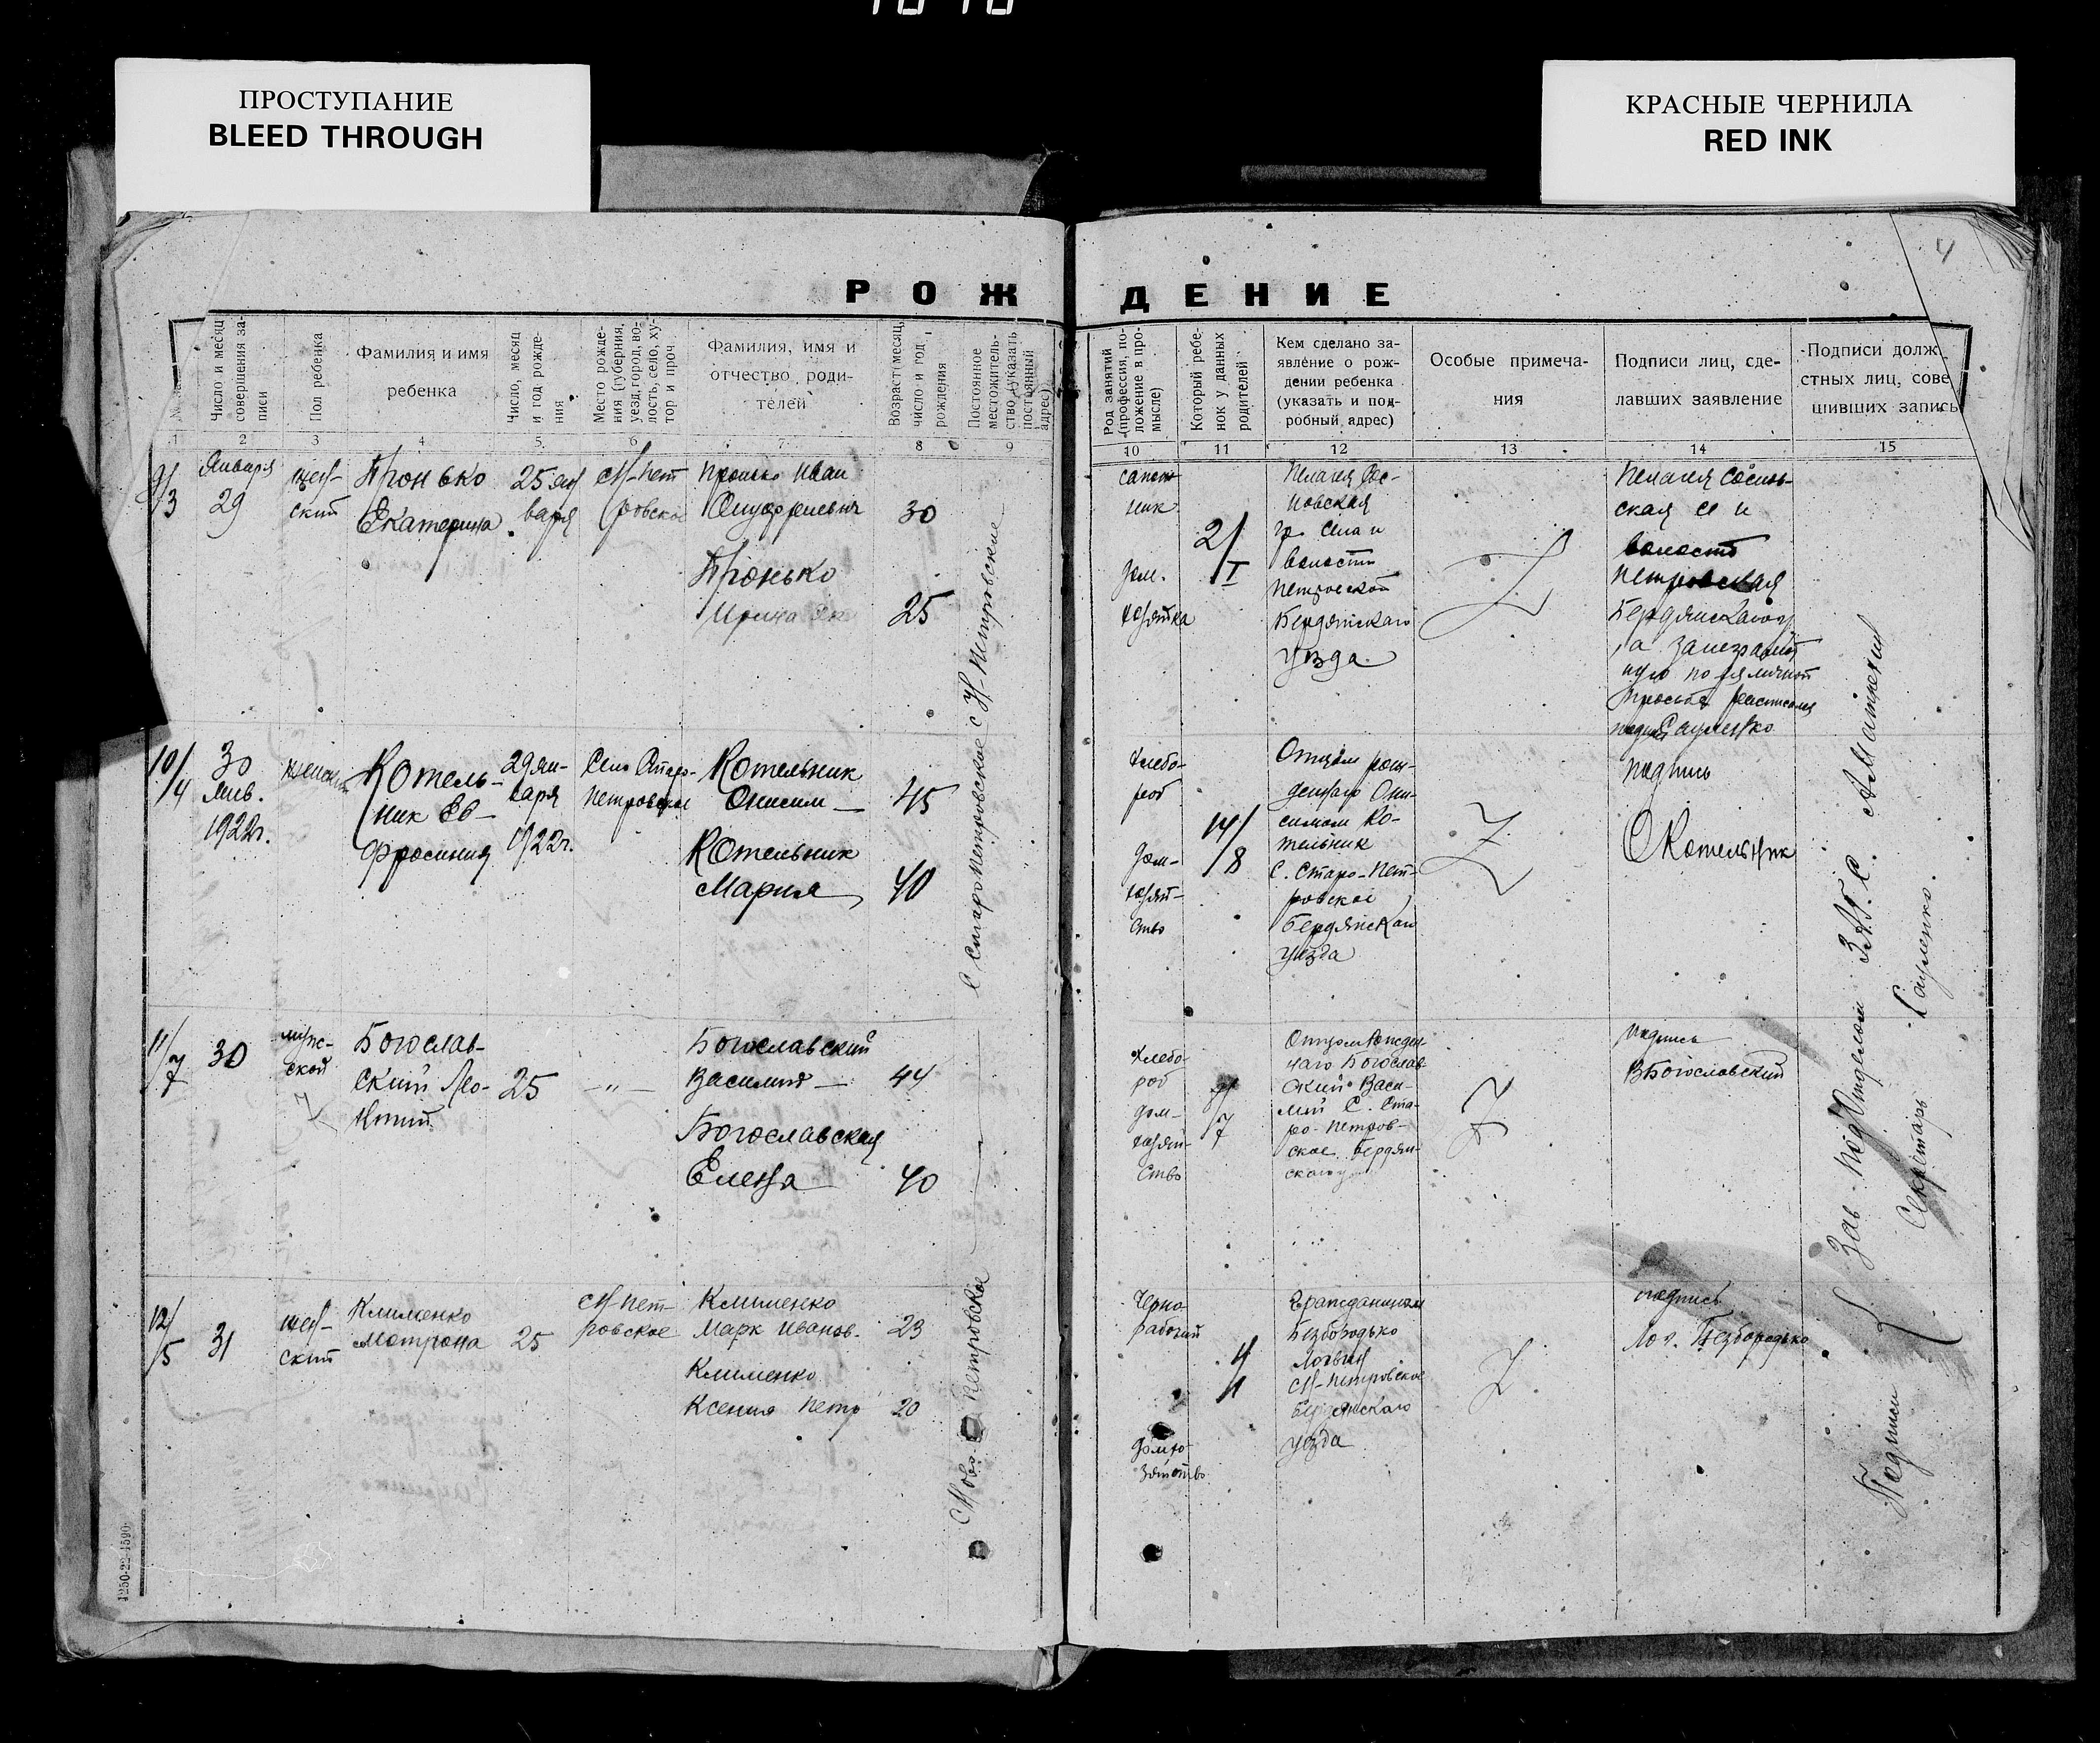 ПРОСТУПАНИЕ
BLEED THROUGH
КРАСНЫЕ ЧЕРНИЛА
RED INK
4
РОЖДЕНИЕ
Число и месяц совершения за-
писи
Пол ребенка
Фамилия и имя
ребенка
Число, месяц
и год рожде-
ния
Место рожде-
ния (губерния,
уезд, город, во-
лость, село, ху-
тор и проч.
Фамилия, имя и
отчество роди-
телей
Возраст месяц,
число и год
рождения
Постоянное
местожитель-
ство (указать
постоянный
адрес)
Род занятий
(профессия, по-
ложение в про-
мысле)
Который ребе-
нок у данных
родителей
Кем сделано за-
явление о рож-
дении ребенка
(указать и под-
робный адрес)
Особые примеча-
ния
Подписи лиц, сде-
лавших заявление
Подписи долж-
стных лиц, сове
шивших запись
1 2 3 4 5 6 7 8 9 10 11 12 13 14 15
9/3
Января
29
жен-
ский
Пронько
Екатерина
25 ян
варя
Н-пет
ровское
Пронько Иван
30
Пронько
Ирина Як
25
сапож
ник
дом.
хозяйка
2/I
Пелагея Сос-
новская
гр. села и
волости
Петровской
Бердянскаго
уезда
ская с и
волости
Петровская
Бердянскаго
10/4
30
янв.
1922г.
женский
Котель-
ник Ев-
фросиния
29 ян-
варя
1922г.
Село Старо-
петровское
Котельник
Онисим
45
Котельник
Мария
40
С Старопетровское с Н-Петровское
хлебо-
роб
дом-
хозяй-
ство
14/8
Отцом рож-
деннаго Они-
симом Ко-
тельник
С. Старо-Пет-
ровское
Бердянскаго
уезда
подпись
О Котельник
11/7
30
муж-
ской
Богослав-
ский Лео-
нтий
25
—"—
Богославский
Василий
44
Богославская
Елена
40
хлебо-
роб
дом-
хозяй-
ство
7
Отцом рожден-
наго Богослав-
ский Васи-
лий С. Ста-
ро-Петров-
ское Бердян-
скаго у
подпись
В Богословский
12/5
31
жен-
ский
Клименко
Матрона
25
Н-пет-
ровское
Клименко
Марк Иванов.
23
Клименко
Ксения Петр
20
Ново Петровское
Черно-
рабочий
домхо-
зяйство
Гражданином
Безбородько
Логвин
Н-Петровское
Бердянскаго
уезда
подпись
Лог. Безбородько
Подписи { Зав. подотделом З.А.Г.С.
Секретарь Сауленко.
1250-22-1590